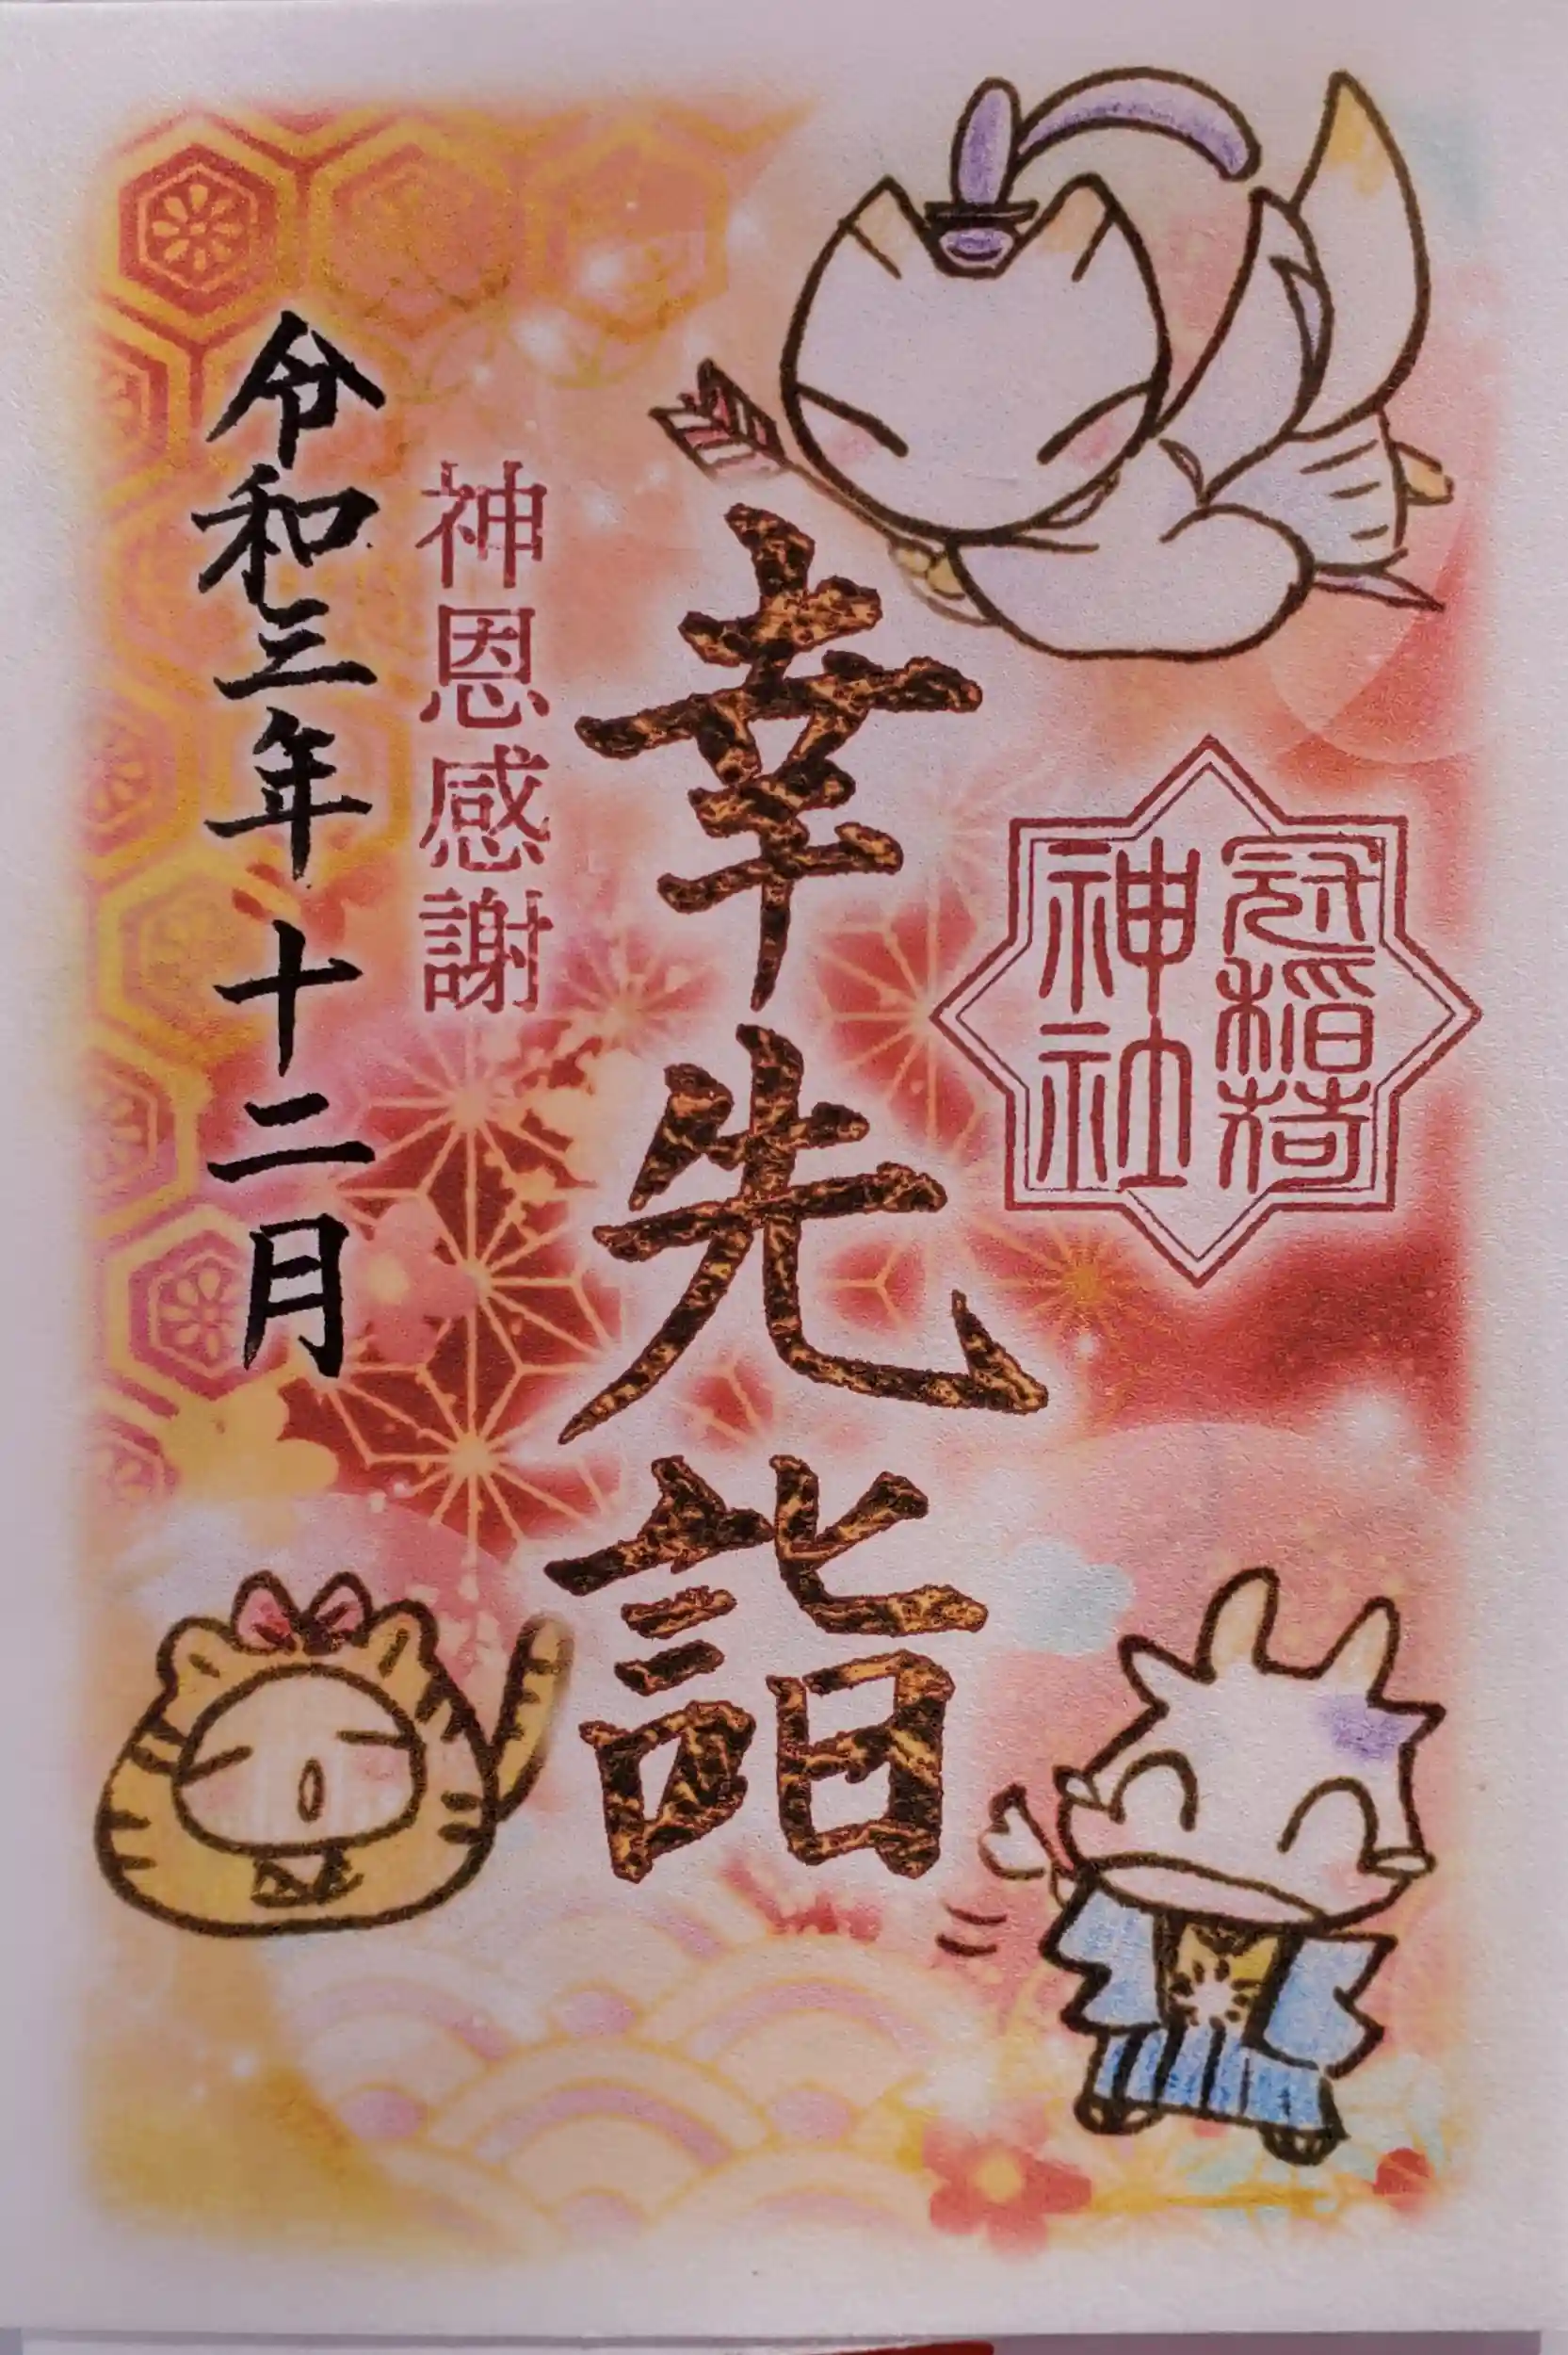 冠稲荷
神社
幸先詣
神恩感謝
令和三年十二月